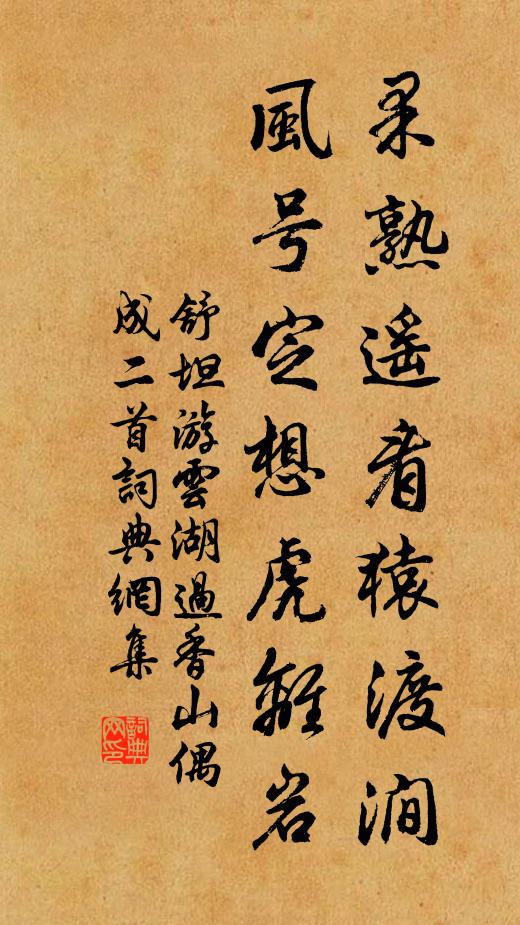 果熟遥看猿渡澗
風号定想虎離岩
舒坦游雲湖過香山偶
成二首詞典網集
詞典网印